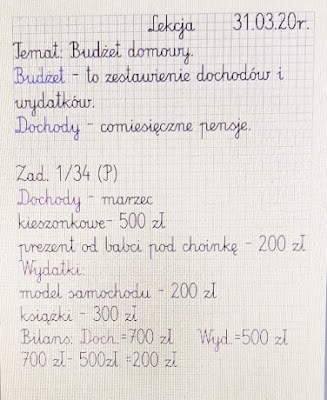 Lekcja 31.03.20r.
Temat: Budżet domowy.
Budżet - to zestawienie dochodów i
wydatków.
Dochody - comiesięczne pensje.
Zad. 1/34 (P)
Dochody - marzec
kieszonkowe- 500 zł
prezent od babci pod choinkę - 200 zł
Wydatki:
model samochodu - 200 zł
książki - 300 zł
Bilans: Doch.=700 zł Wyd.=500 zł
700 zł- 500zł =200 zł